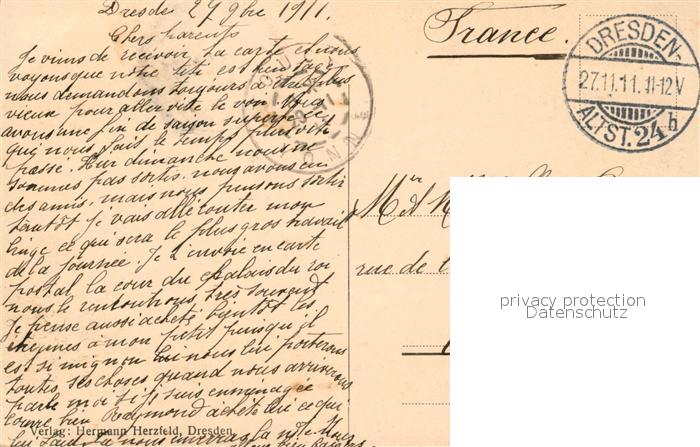 Dresde 27 9bre 1911.
Chers parents
Je viens de recevoir la carte et nous
voyons que notre titi est bien sage
nous demandons toujours à être plus
vieux pour aller vite le voir. Nous
avons une fin de saison superbe ce
qui nous fait le temps plus vite
passé. Hier dimanche nous ne
sommes pas sortis, nous avons eu
des amis, mais nous pensons sortir
tantôt je vais allé couter mon
linge ce qui sera le plus gros travail
de la journée. Je t'envoie en carte
postal la cour du palais du roi
nous le rencontrons très souvent
Je pense aussi acheté bientôt les
étrennes à mon petit puisqu'il
est si mignon nous lui porterons
toutes ses choses quand nous arriverons
parle moi si je suis
Raymond acheté ce qui
France.
DRESDEN-
27.11.11.11-12V
ALTST. 24 h
Mr et M
rue de
privacy protection
Datenschutz
Verlag: Hermann Herzfeld, Dresden.